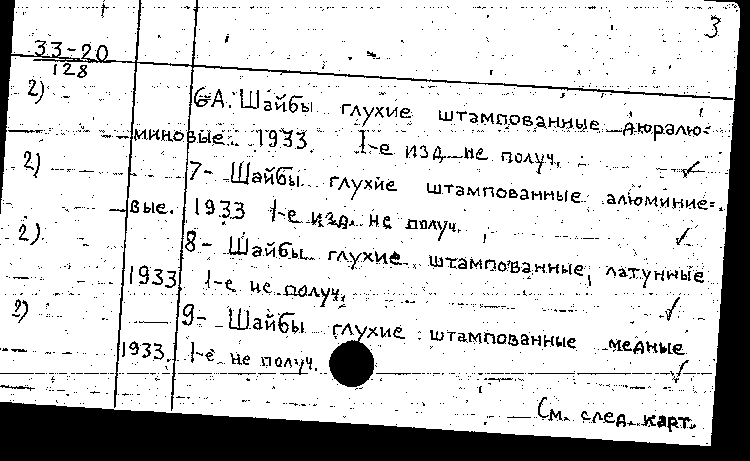 3
33-20
128
2) 6А. Шайбы глухие штампованные дюралю=
миновые. 1933. I-е изд. не получ. ✓
2) 7- Шайбы глухие штампованные алюминие=
вые. 1933 I-е изд. не получ. ✓
2) 8- Шайбы глухие штампованные, латунные
1933. I-е не получ. ✓
2) 9- Шайбы глухие штампованные медные
1933. I-е не получ. ✓
См. след. карт.